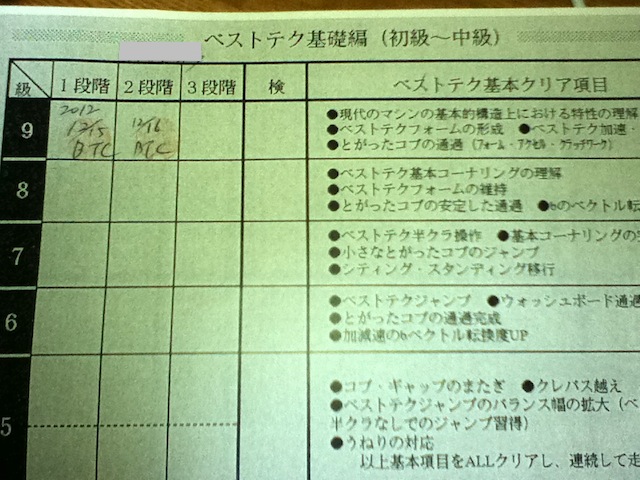 ベストテク基礎編（初級～中級）
級 1段階 2段階 3段階 検 ベストテク基本クリア項目
9
2012
12/15 12/16
BTC BTC
●現代のマシンの基本的構造上における特性の理解
●ベストテクフォームの形成 ●ベストテク加速・
●とがったコブの通過（フォーム・アクセル・クラッチワーク）
8
●ベストテク基本コーナリングの理解
●ベストテクフォームの維持
●とがったコブの安定した通過 ●bのベクトル転
7
●ベストテク半クラ操作 ●基本コーナリングの
●小さなとがったコブのジャンプ
●シティング・スタンディング移行
6
●ベストテクジャンプ ●ウォッシュボード通過
●とがったコブの通過完成
●加減速のbベクトル転換度UP
5
●コブ・ギャップのまたぎ ●クレバス越え
●ベストテクジャンプのバランス幅の拡大（ベ
半クラなしでのジャンプ習得）
●うねりの対応
以上基本項目をALLクリアし、連続して走